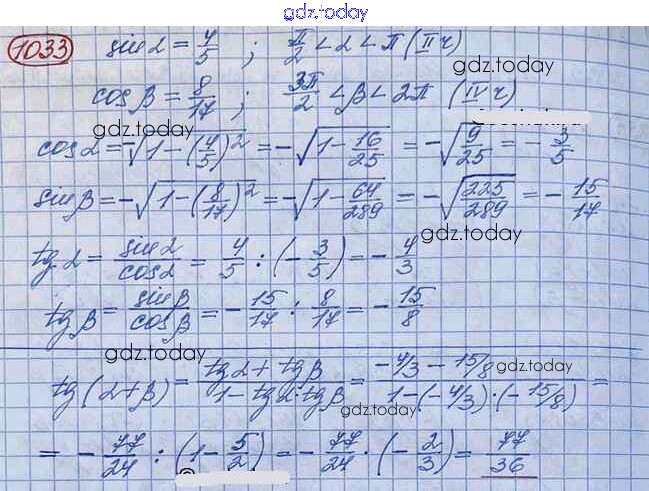 gdz.today
1033 sin α = 4/5 ; π/2 < α < π (II ч)
gdz.today
cos β = 8/17 ; 3π/2 < β < 2π (IV ч)
gdz.today
cos α = -√(1-(4/5)²) = -√(1-16/25) = -√(9/25) = -3/5
sin β = -√(1-(8/17)²) = -√(1-64/289) = -√(225/289) = -15/17
gdz.today
tg α = sin α/cos α = 4/5 : (-3/5) = -4/3
tg β = sin β/cos β = -15/17 : 8/17 = -15/8
gdz.today
tg(α+β) = (tg α + tg β)/(1 - tg α · tg β) = (-4/3 - 15/8)/(1-(-4/3)·(-15/8)) =
gdz.today
gdz.today
= -77/24 : (1-5/2) = -77/24 · (-2/3) = 77/36
gdz.today